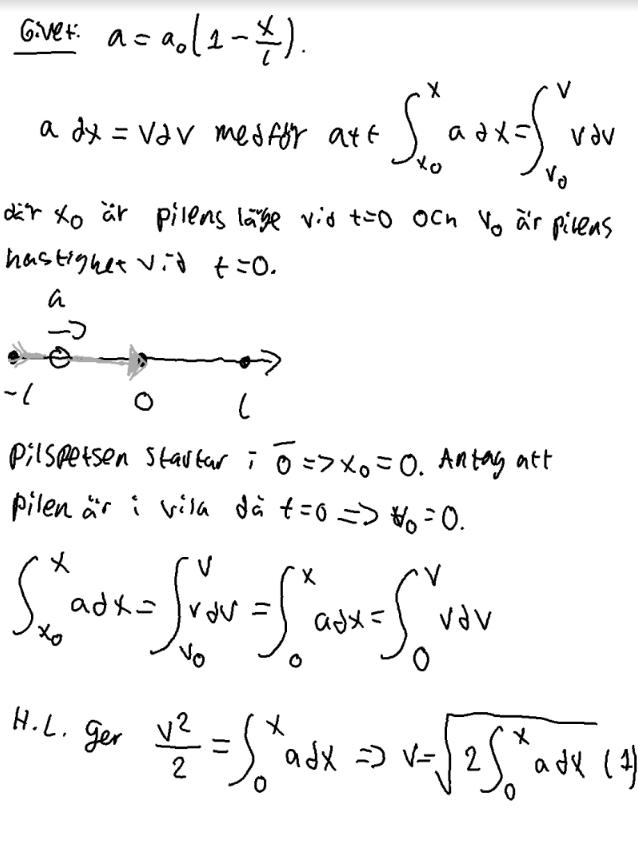 Givet: a = a₀(1 - x/l).
a dx = vdv medför att ∫_{x₀}^{x} a dx = ∫_{v₀}^{v} vdv
där x₀ är pilens läge vid t=0 och v₀ är pilens
hastighet vid t=0.
a
-l 0 l
Pilspetsen startar i 0̄ => x₀=0. Antag att
pilen är i vila då t=0 => v₀=0.
∫_{x₀}^{x} adx = ∫_{v₀}^{v} vdv = ∫_{0}^{x} adx = ∫_{0}^{v} vdv
H.L. ger v²/2 = ∫_{0}^{x} adx => v=√(2∫_{0}^{x} adx) (1)